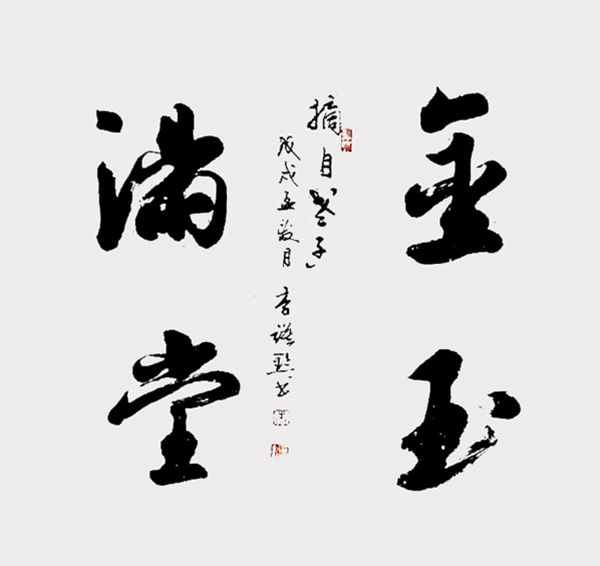 金玉
摘自《老子》
戊戌孟月
李书
满堂